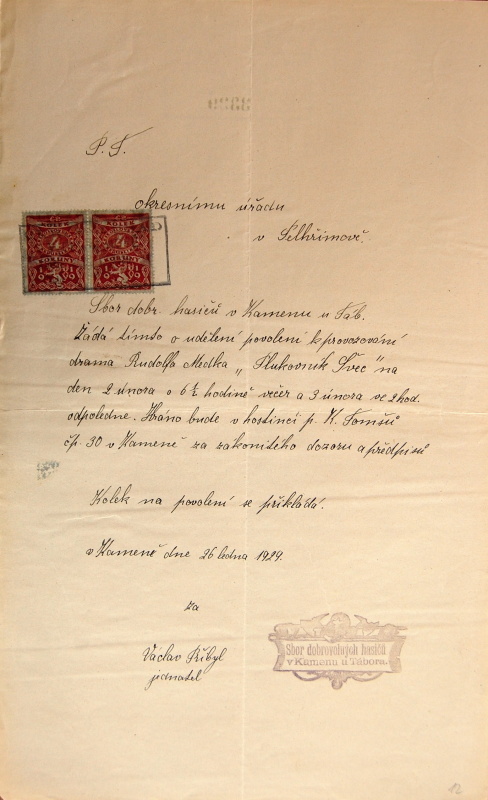 P. T.
okresnímu úřadu
v Pelhřimově.
KOLEK
4
KORUNY
KOLEK
4
KORUNY
Sbor dobr. hasičů v Kamenu u Táb.
žádá tímto o udělení povolení k provozování
drama Rudolfa Medka „Plukovník Švec" na
den 2 února o 6½ hodině večer a 3 února ve 2 hod.
odpoledne. Hráno bude v hostinci p. K. Tomšů
čp. 30 v Kameně za zákonitého dozoru a předpisů
Kolek na povolení se přikládá.
v Kameně dne 26 ledna 1929.
za
Václav Přibyl
jednatel
Sbor dobrovolných hasičů
v Kamenu u Tábora.
12